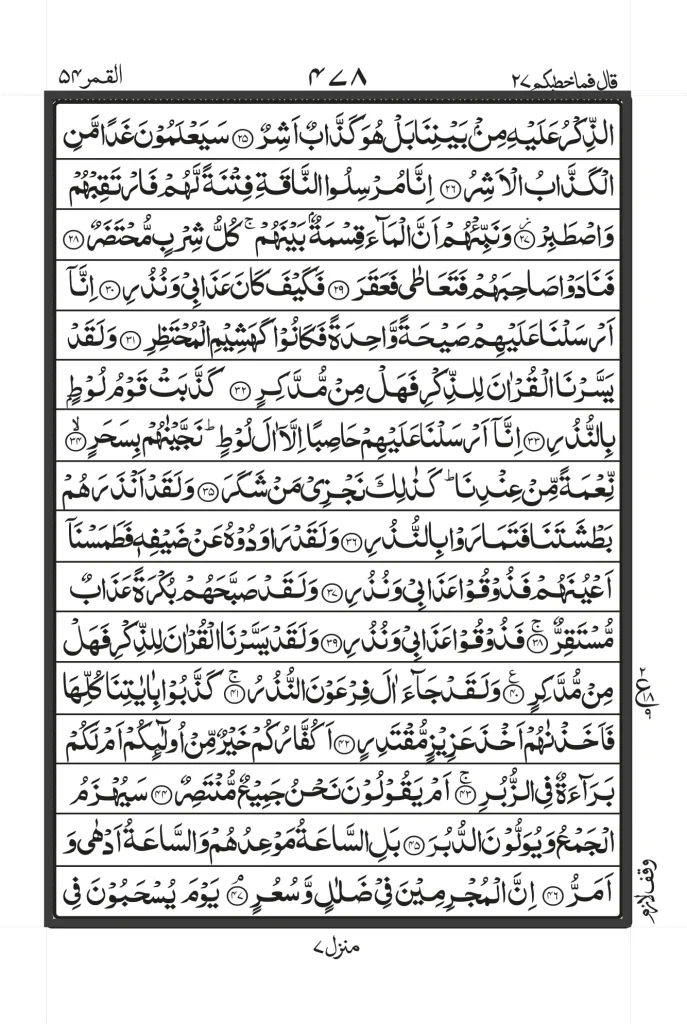 قال فماخطبکم ۲۷
۴۷۸
القمر ۵۴
الذِّكۡرُ عَلَيۡهِ مِنۡۢ بَيۡنِنَا بَلۡ هُوَ كَذَّابٌ اَشِرٌ ۝۲۵ سَيَعۡلَمُوۡنَ غَدًا مَّنِ
الۡكَذَّابُ الۡاَشِرُ ۝۲۶ اِنَّا مُرۡسِلُوا النَّاقَةِ فِتۡنَةً لَّهُمۡ فَارۡتَقِبۡهُمۡ
وَاصۡطَبِرۡ ۝۲۷ وَنَبِّئۡهُمۡ اَنَّ الۡمَآءَ قِسۡمَةٌۢ بَيۡنَهُمۡ‌ۚ كُلُّ شِرۡبٍ مُّحۡتَضَرٌ ۝۲۸
فَنَادَوۡا صَاحِبَهُمۡ فَتَعَاطٰى فَعَقَرَ ۝۲۹ فَكَيۡفَ كَانَ عَذَابِىۡ وَنُذُرِ ۝۳۰ اِنَّاۤ
اَرۡسَلۡنَا عَلَيۡهِمۡ صَيۡحَةً وَّاحِدَةً فَكَانُوۡا كَهَشِيۡمِ الۡمُحۡتَظِرِ ۝۳۱ وَلَقَدۡ
يَسَّرۡنَا الۡقُرۡاٰنَ لِلذِّكۡرِ فَهَلۡ مِنۡ مُّدَّكِرٍ ۝۳۲ كَذَّبَتۡ قَوۡمُ لُوۡطٍۢ
بِالنُّذُرِ ۝۳۳ اِنَّاۤ اَرۡسَلۡنَا عَلَيۡهِمۡ حَاصِبًا اِلَّاۤ اٰلَ لُوۡطٍ‌ؕ نَجَّيۡنٰهُمۡ بِسَحَرٍۙ ۝۳۴
نِّعۡمَةً مِّنۡ عِنۡدِنَا‌ؕ كَذٰلِكَ نَجۡزِىۡ مَنۡ شَكَرَ ۝۳۵ وَلَقَدۡ اَنۡذَرَهُمۡ
بَطۡشَتَنَا فَتَمَارَوۡا بِالنُّذُرِ ۝۳۶ وَلَقَدۡ رَاوَدُوۡهُ عَنۡ ضَيۡفِهٖ فَطَمَسۡنَاۤ
اَعۡيُنَهُمۡ فَذُوۡقُوۡا عَذَابِىۡ وَنُذُرِ ۝۳۷ وَلَقَدۡ صَبَّحَهُمۡ بُكۡرَةً عَذَابٌ
مُّسۡتَقِرٌّ‌ۚ ۝۳۸ فَذُوۡقُوۡا عَذَابِىۡ وَنُذُرِ ۝۳۹ وَلَقَدۡ يَسَّرۡنَا الۡقُرۡاٰنَ لِلذِّكۡرِ فَهَلۡ
مِنۡ مُّدَّكِرٍ ۝۴۰ع وَلَقَدۡ جَآءَ اٰلَ فِرۡعَوۡنَ النُّذُرُ‌ۚ ۝۴۱ كَذَّبُوۡا بِاٰيٰتِنَا كُلِّهَا
فَاَخَذۡنٰهُمۡ اَخۡذَ عَزِيۡزٍ مُّقۡتَدِرٍ ۝۴۲ اَكُفَّارُكُمۡ خَيۡرٌ مِّنۡ اُولٰٓئِكُمۡ اَمۡ لَكُمۡ
بَرَآءَةٌ فِى الزُّبُرِ‌ۚ ۝۴۳ اَمۡ يَقُوۡلُوۡنَ نَحۡنُ جَمِيۡعٌ مُّنۡتَصِرٌ ۝۴۴ سَيُهۡزَمُ
الۡجَمۡعُ وَيُوَلُّوۡنَ الدُّبُرَ ۝۴۵ بَلِ السَّاعَةُ مَوۡعِدُهُمۡ وَالسَّاعَةُ اَدۡهٰى وَ
اَمَرُّ ۝۴۶ اِنَّ الۡمُجۡرِمِيۡنَ فِىۡ ضَلٰلٍ وَّسُعُرٍ‌ۘ ۝۴۷ يَوۡمَ يُسۡحَبُوۡنَ فِى
وقف لازم
منزل ۷